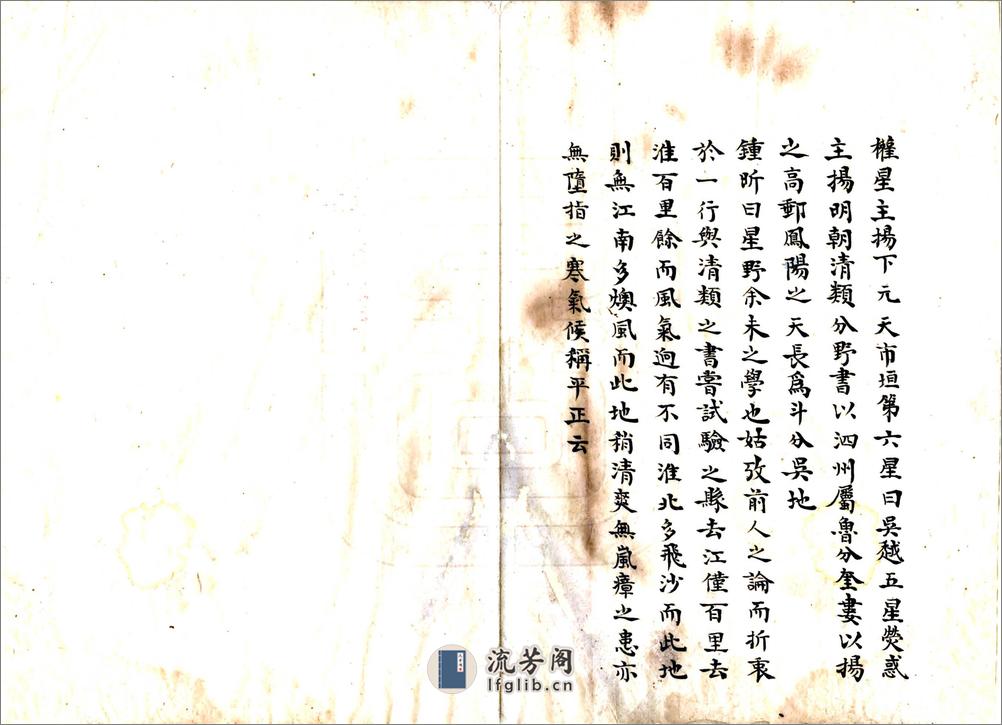 權星主揚下元天市垣第六星曰吳越五星熒惑
主揚明朝清類分野書以泗州屬魯分奎婁以揚
之高郵鳳陽之天長爲斗分吳地
鍾昕曰星野余未之學也姑攷前人之論而折衷
於一行與清類之書嘗試驗之縣去江僅百里去
淮百里餘而風氣逈有不同淮北多飛沙而此地
則無江南多燠風而此地稍清爽無嵐瘴之患亦
無墮指之寒氣候稱平正云
流芳阁
lfglib.cn